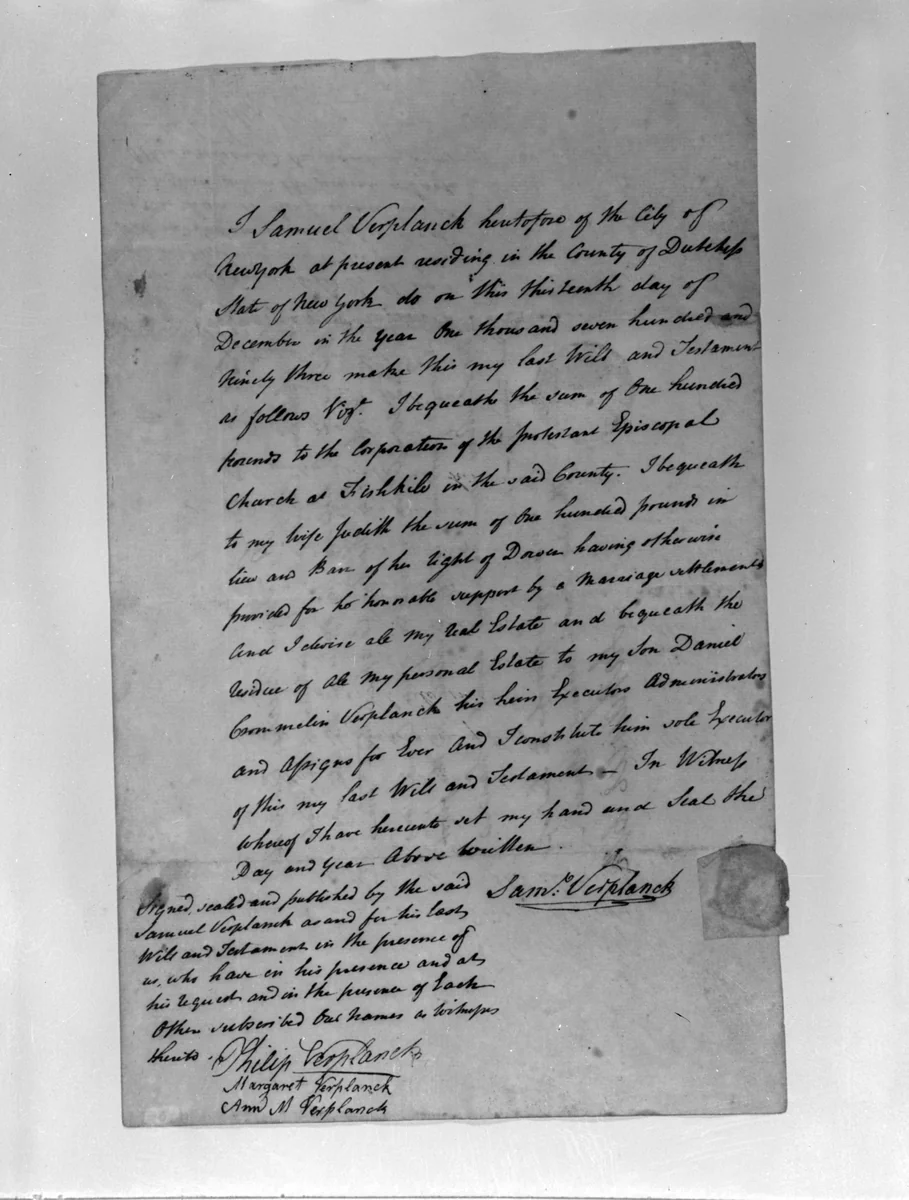 I Samuel Verplanck heretofore of the City of
NewYork at present residing in the County of Dutchess
State of New York do on this thirteenth day of
December in the year One thousand seven hundred and
Ninety three make this my last Will and Testament
as follows Vizt. I bequeath the sum of One hundred
pounds to the Corporation of the Protestant Episcopal
Church at Fishkill in the said County. I bequeath
to my Wife Judith the sum of One hundred pounds in
lieu and Barr of her right of Dower having otherwise
provided for her honorable support by a Marriage settlement
And I devise all my real Estate and bequeath the
residue of all my personal Estate to my Son Daniel
Crommelin Verplanck his heirs Executors Administrators
and Assigns for Ever And I constitute him sole Executor
of this my last Will and Testament — In Witness
whereof I have hereunto set my hand and Seal the
Day and year Above Written.
Saml. Verplanck
Signed, sealed and published by the said
Samuel Verplanck as and for his last
Will and Testament in the presence of
us, who have in his presence and at
his request and in the presence of Each
Other subscribed Our Names as Witnesses
thereto.
Philip Verplanck
Margaret Verplanck
Ann M Verplanck